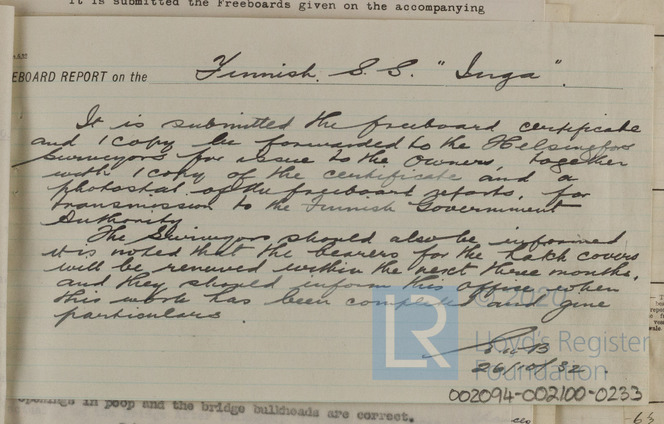 It is submitted the Freeboards given on the accompanying
EBOARD REPORT on the Finnish. S.S. "Inga".
It is submitted the freeboard certificate
and 1 copy be forwarded to the Helsingfors
Surveyors for issue to the Owners, together
with 1 copy of the certificate and a
photostat of the freeboard reports, for
transmission to the Finnish Government
Authority
The Surveyors should also be informed
it is noted that the bearers for the hatch covers
will be renewed within the next three months,
and they should inform this office when
this work has been completed and give
particulars
26/10/32.
LR
© 2020
Lloyd's Register
Foundation
002094-002100-0233
openings in poop and the bridge bulkheads are correct.